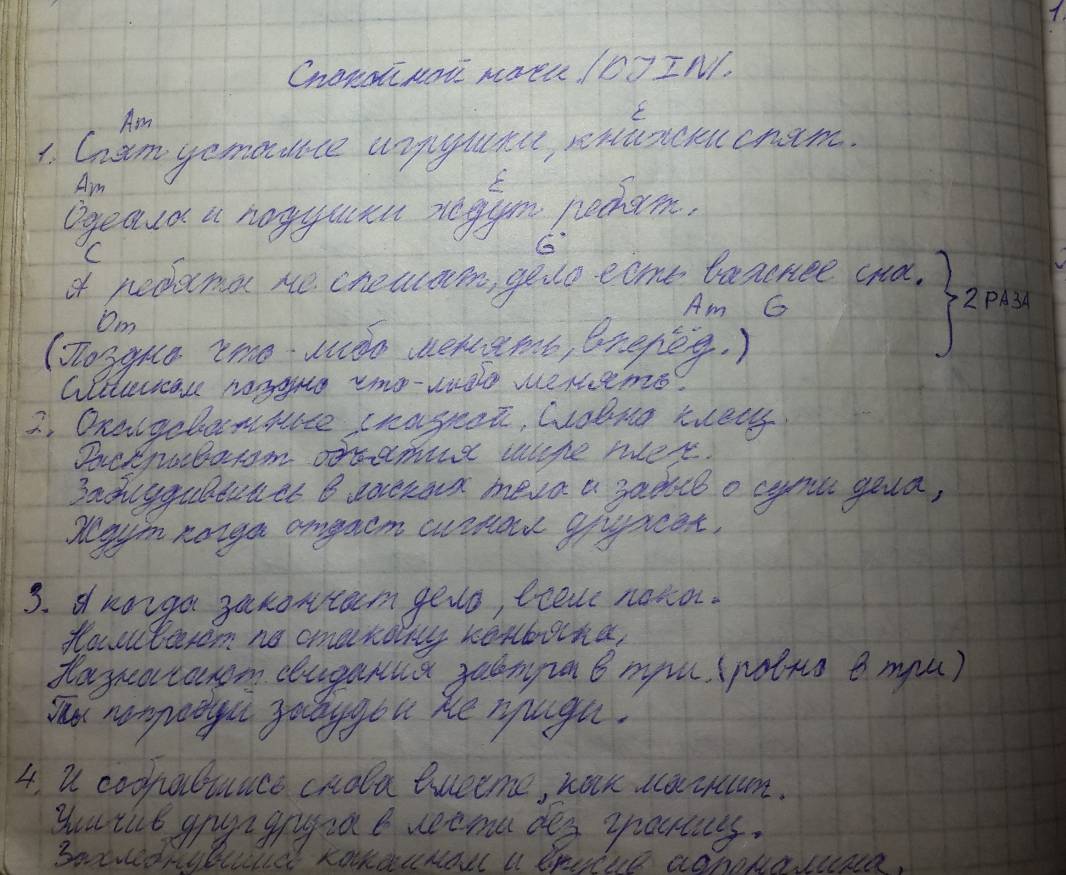 Спокойной ночи /DJIN/.
Am E
1. Спят усталые игрушки, книжки спят.
Am E
Одеала и подушки ждут ребят.
C G
А ребята не спешат, дело есть важнее сна.
2 РАЗА
Dm Am G
(Поздно что-либо менять, вперёд.)
Слишком поздно что-либо менять.
2. Околдованные сказкой, словно клещ.
Раскрывают объятия шире плеч.
Заблудившись в ласках тела и забыв о сути дела,
Ждут когда отдаст сигнал дружок.
3. А когда закончат дело, всем пока.
Наливают по стакану коньяка,
Назначают свидания завтра в три. (ровно в три)
Ты попробуй забудь и не приди.
4. И собравшись снова вместе, как магнит.
Уличив друг друга в лести без границ.
Захлебнувшись кокаином и адроналина,